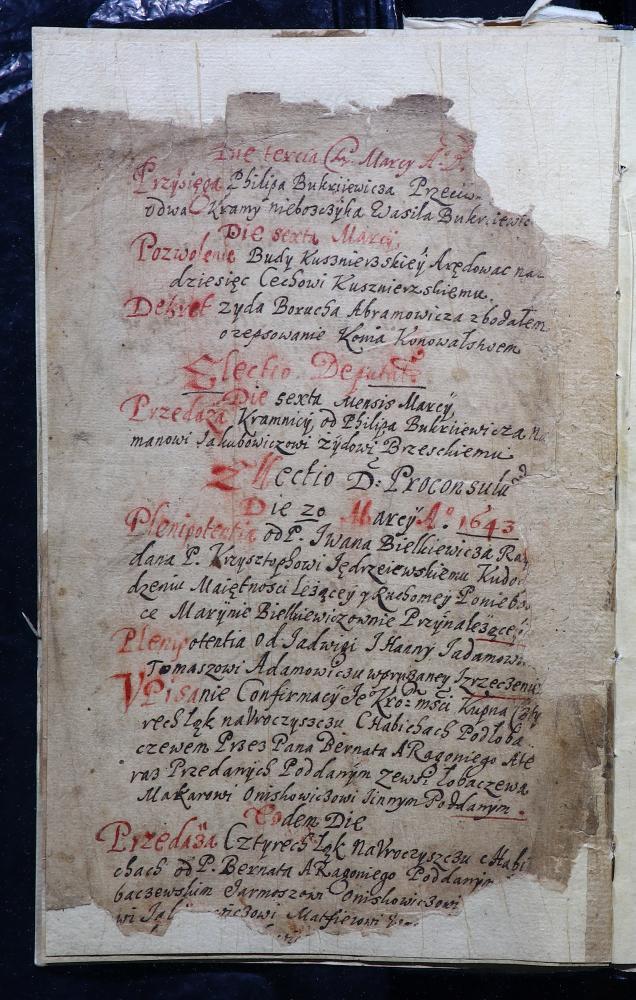 Die tercia Marcy A° D
Przysięga Philipa Bukriiewicza Przeciw
odwa Kramy nieboszczyka Wasila Bukriiewic
Die sexta Marcy,
Pozwolenie Budy Kusznierzskiey Arędować na
dziesięc Cechowi Kusznierzskiemu
Dekret żyda Borucha Abramowicza zbodałem
o zepsowanie Konia Konowalstwem
Electio Deputat
Die sexta Mensis Marcy,
Przedaża Kramnicy od Philipa Bukriiewicza
manowi Jakubowiczowi żydowi Brzeskiemu
Ellectio D: Proconsulu
Die 20 Marcy A° 1643
Plenipotentia od P. Iwana Bielkiewicza
dana P. Krzysztophowi Jędrzeiewskiemu
dzeniu Maiętnosci Leżącey y Ruchomey
ce Marynie Bielkiewiczownie Przynależące
Plenipotentia od Jadwigi I Hanny
Tomaszowi Adamowiczu wprużaney Zrzeczeniu
WPisanie Confirmacy Je° Kro: mśći Kupna
rech Łąk na Vroczyszczu CHabichach Podłoba
czewem Przez Pana Bernata ARagoniego
raz Przedanych Poddanym Zewsi Łobaczewa
Makarowi Onishowiczowi Iinnym Poddanym.
Eodem Die
Przedaża Cztyrech Łąk na Vroczyszczu cHabi
chach od P. Bernata ARagoniego Poddanym
baczewskim Jarmoszowi Onishowiczowi